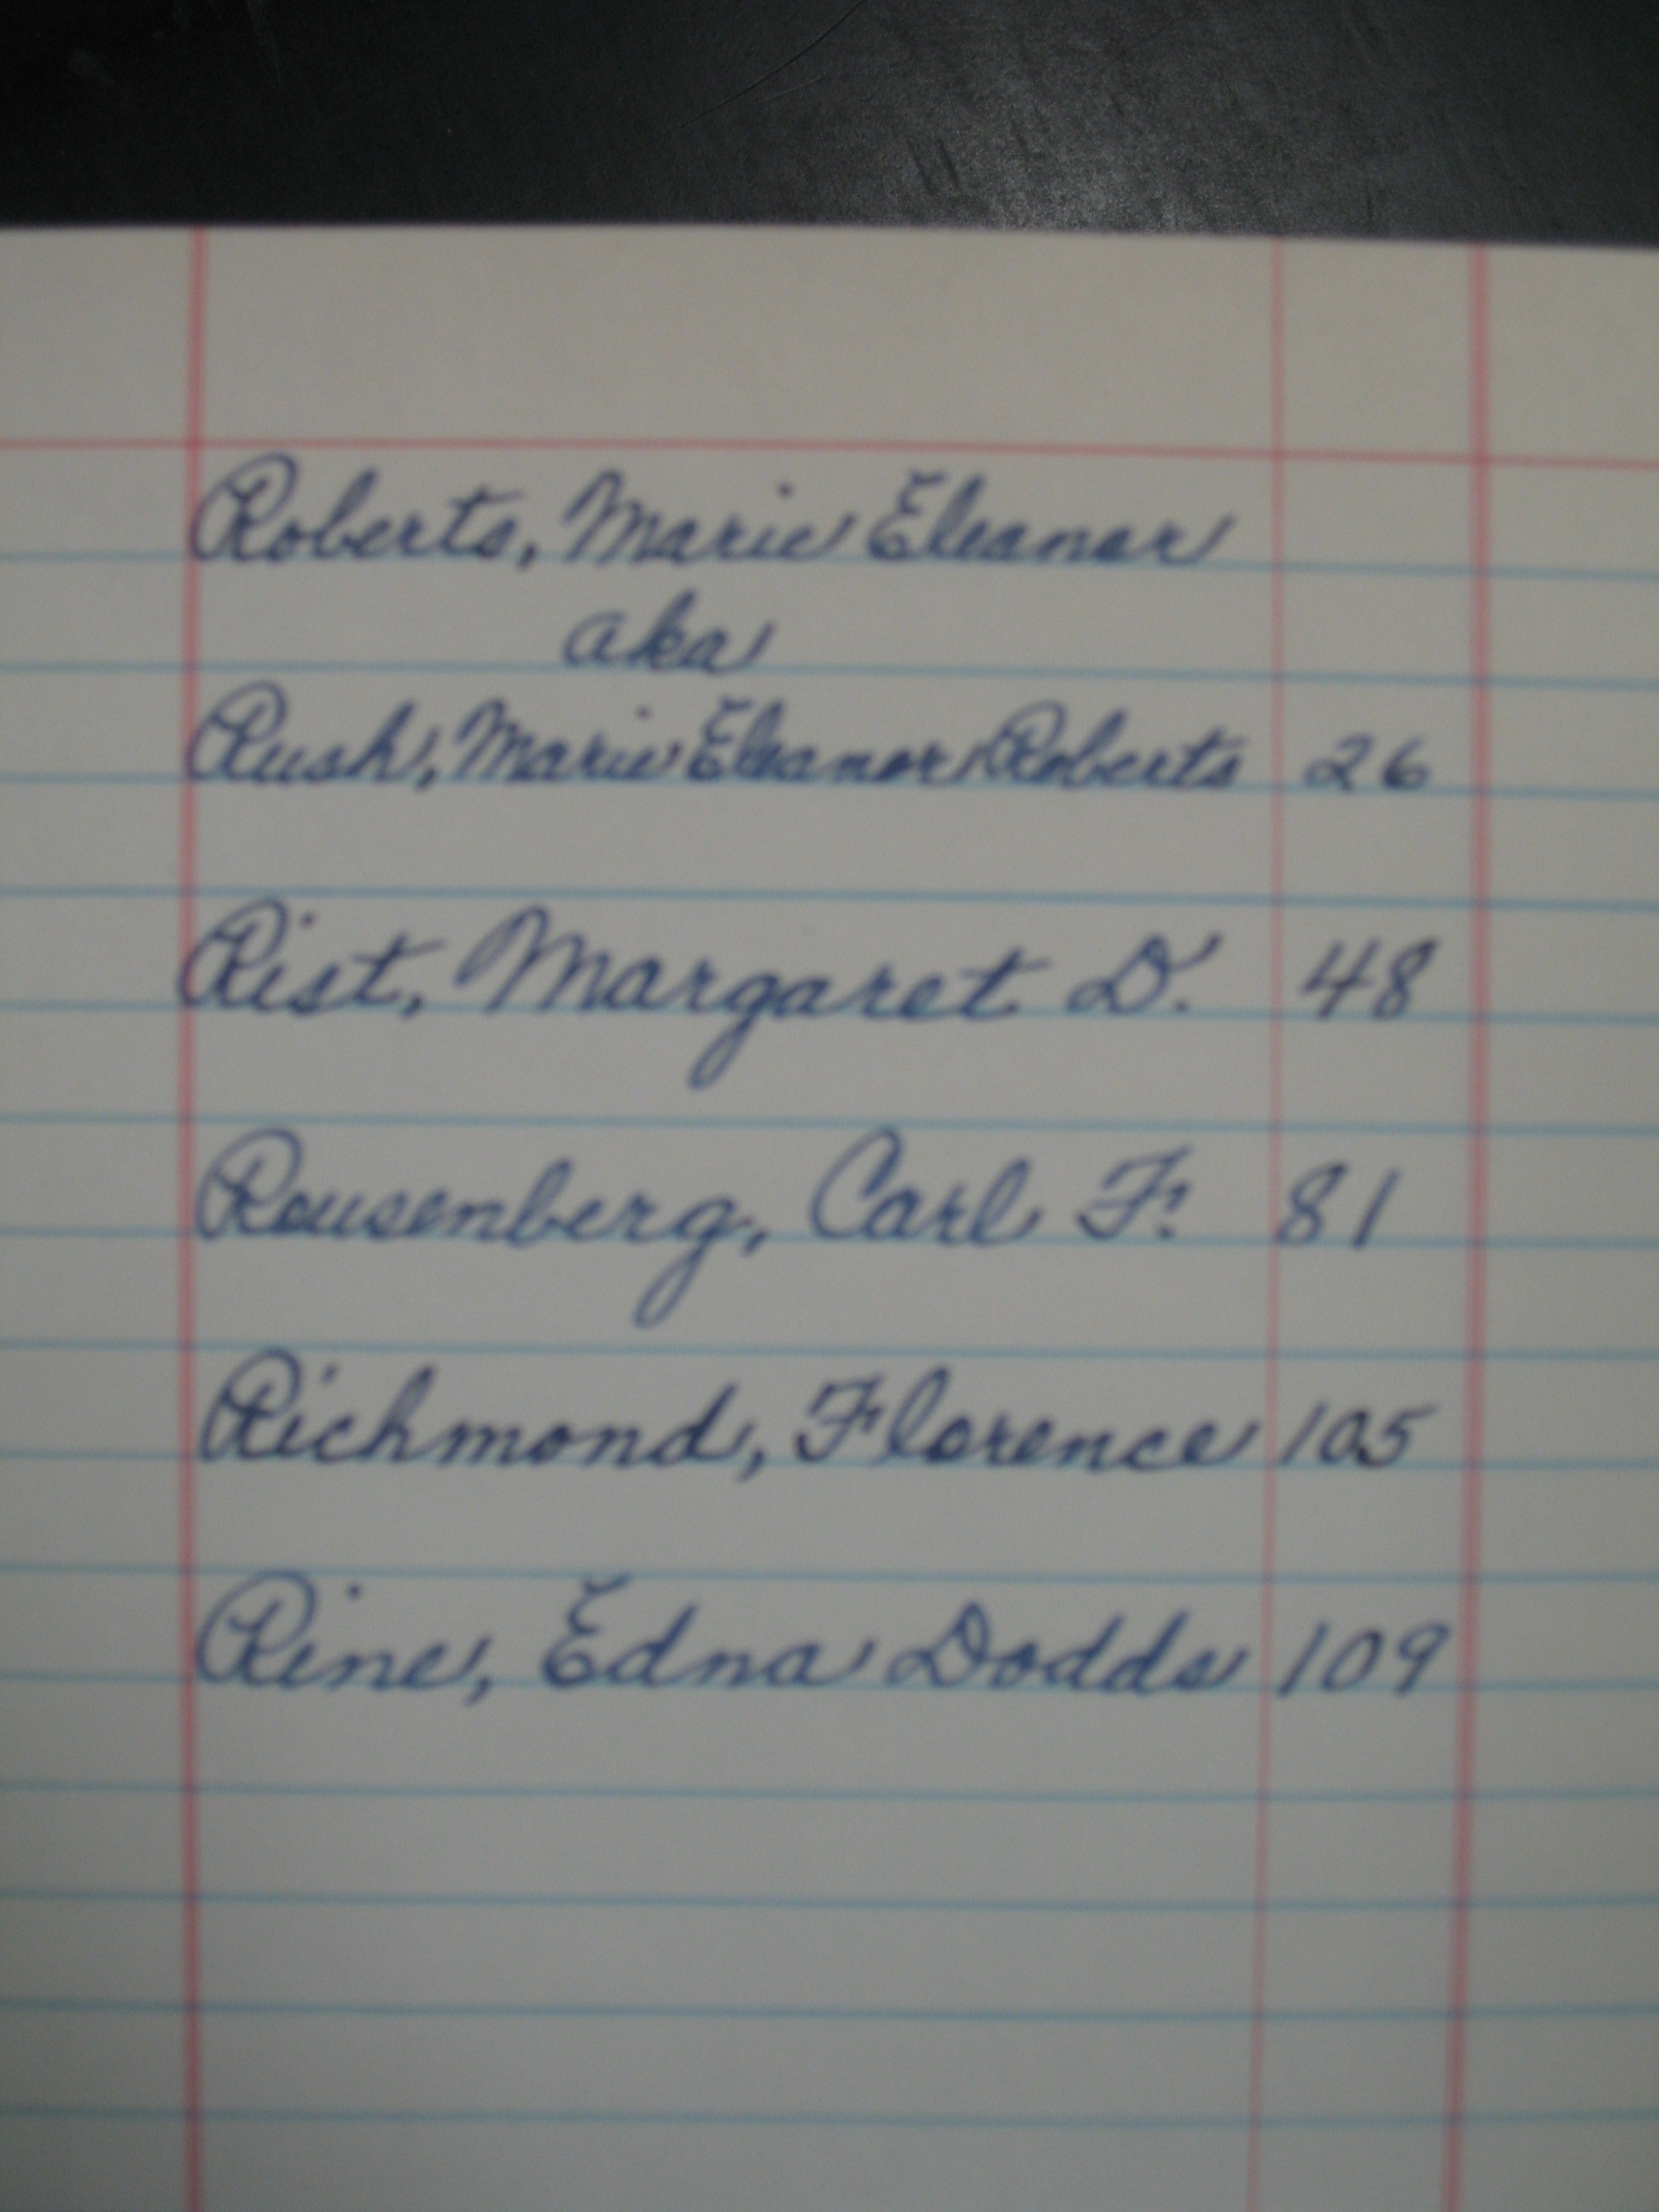 Roberts, Marie Eleanor
aka
Rush, Marie Eleanor Roberts 26
Rist, Margaret D. 48
Rousenberg, Carl F. 81
Richmond, Florence 105
Rine, Edna Dodds 109